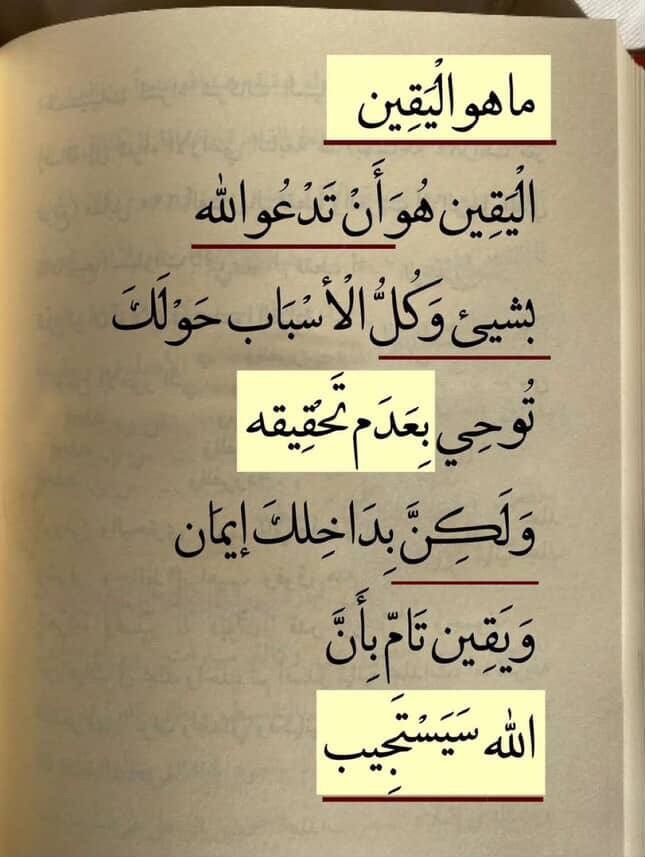 ما هو الْيَقِين
الْيَقِين هُوَ أَنْ تَدْعُو الله
بشيئ وَكُلُّ الْأسْبَاب حَوْلَكَ
تُوحِي بِعَدَم تَحْقِيقه
وَلَكِنَّ بِدَاخِلكَ إيمَان
وَيَقِين تَامّ بِأَنَّ
الله سَيَسْتَجِيب